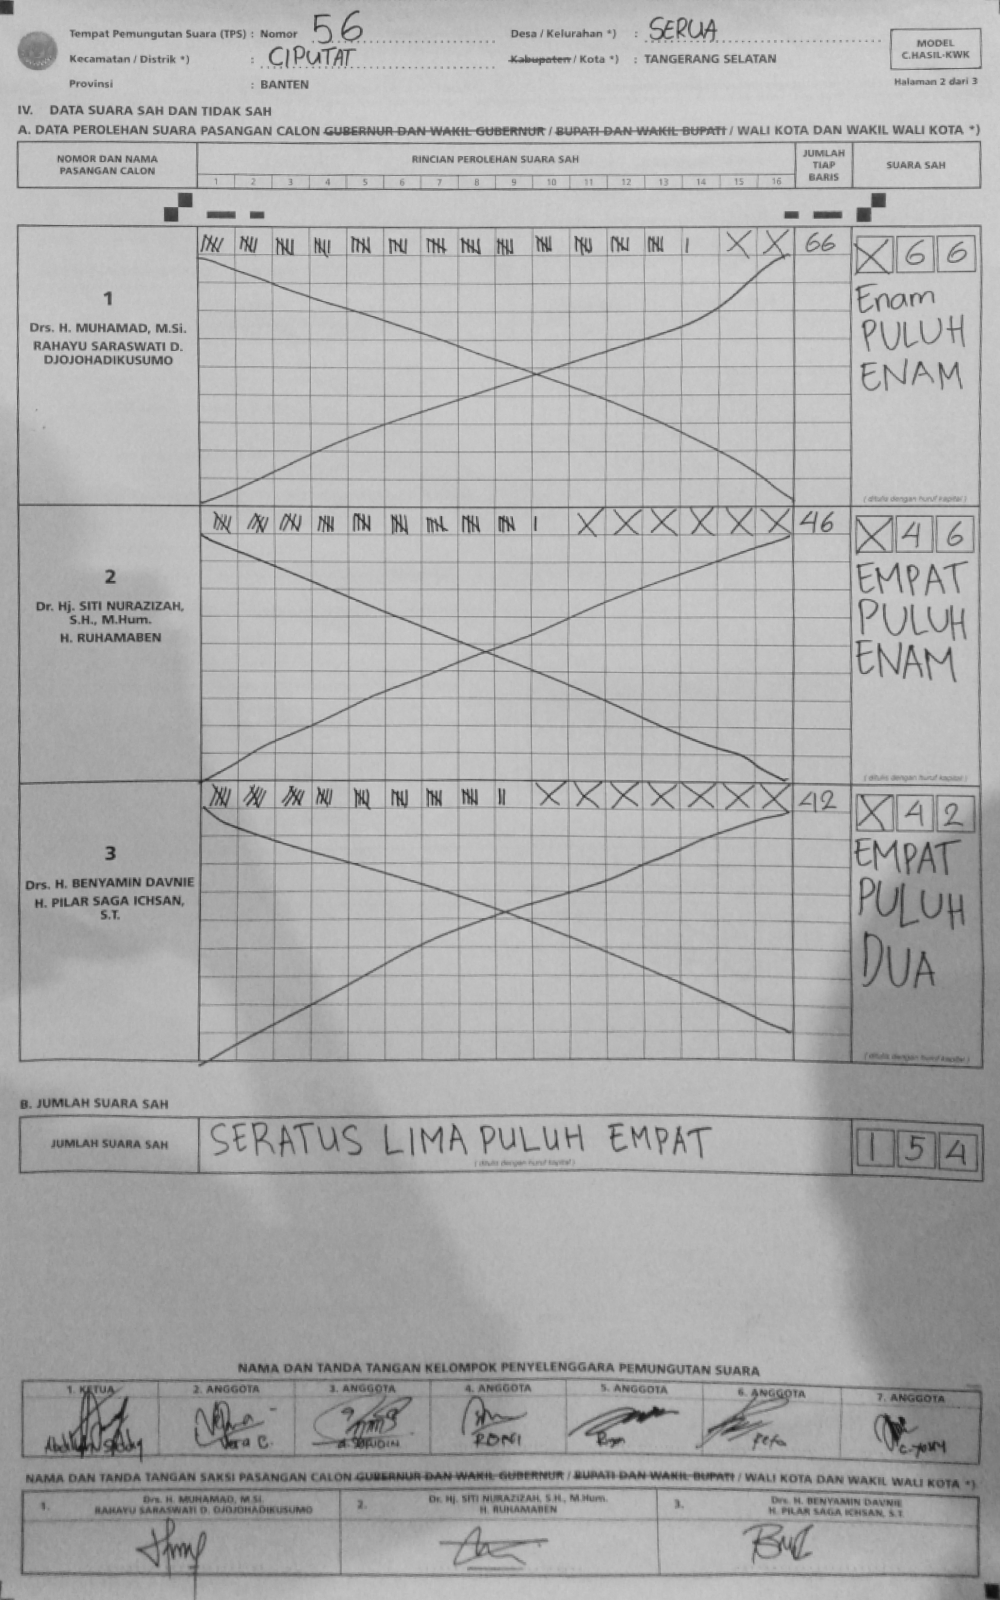 Tempat Pemungutan Suara (TPS) : Nomor 56 Desa / Kelurahan *) : SERUA
Kecamatan / Distrik *) : CIPUTAT Kabupaten / Kota *) : TANGERANG SELATAN
Provinsi : BANTEN
MODEL
C.HASIL-KWK
Halaman 2 dari 3
IV. DATA SUARA SAH DAN TIDAK SAH
A. DATA PEROLEHAN SUARA PASANGAN CALON GUBERNUR DAN WAKIL GUBERNUR / BUPATI DAN WAKIL BUPATI / WALI KOTA DAN WAKIL WALI KOTA *)
NOMOR DAN NAMA
PASANGAN CALON
RINCIAN PEROLEHAN SUARA SAH
1 2 3 4 5 6 7 8 9 10 11 12 13 14 15 16
JUMLAH
TIAP
BARIS
SUARA SAH
1
Drs. H. MUHAMAD, M.Si.
RAHAYU SARASWATI D.
DJOJOHADIKUSUMO
66
X 6 6
Enam
PULUH
ENAM
( ditulis dengan huruf kapital )
2
Dr. Hj. SITI NURAZIZAH,
S.H., M.Hum.
H. RUHAMABEN
46
X 4 6
EMPAT
PULUH
ENAM
( ditulis dengan huruf kapital )
3
Drs. H. BENYAMIN DAVNIE
H. PILAR SAGA ICHSAN,
S.T.
42
X 4 2
EMPAT
PULUH
DUA
( ditulis dengan huruf kapital )
B. JUMLAH SUARA SAH
JUMLAH SUARA SAH
SERATUS LIMA PULUH EMPAT
( ditulis dengan huruf kapital )
1 5 4
NAMA DAN TANDA TANGAN KELOMPOK PENYELENGGARA PEMUNGUTAN SUARA
1. KETUA 2. ANGGOTA 3. ANGGOTA 4. ANGGOTA 5. ANGGOTA 6. ANGGOTA 7. ANGGOTA
Vera C. RONI
NAMA DAN TANDA TANGAN SAKSI PASANGAN CALON GUBERNUR DAN WAKIL GUBERNUR / BUPATI DAN WAKIL BUPATI / WALI KOTA DAN WAKIL WALI KOTA *)
1. Drs. H. MUHAMAD, M.Si.
RAHAYU SARASWATI D. DJOJOHADIKUSUMO
2. Dr. Hj. SITI NURAZIZAH, S.H., M.Hum.
H. RUHAMABEN
3. Drs. H. BENYAMIN DAVNIE
H. PILAR SAGA ICHSAN, S.T